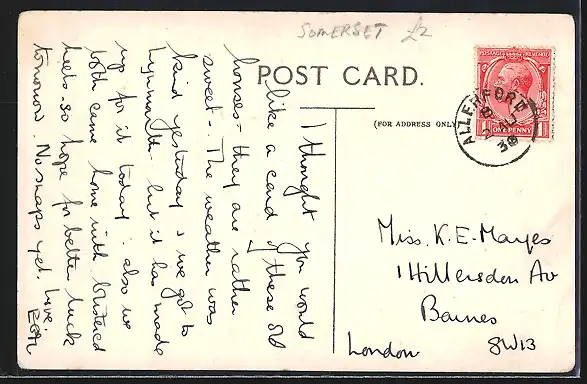 SOMERSET £2
POST CARD.
(FOR ADDRESS ONLY
POSTAGE REVENUE
ONE PENNY
ALLERFORD
I thought you would
like a card of these old
houses - they are rather
sweet - The weather was
kind yesterday & we got to
Lynmouth but it has made
up for it today: also we
both came home with blistered
heels - so hope for better luck
tomorrow. No snaps yet. Love.
Miss. K. E. Mayes
1 Hillersdon Av
Barnes
London SW13